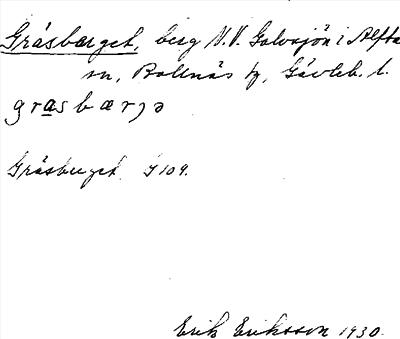 Gråsberget, berg N.V. Galvsjön i Alfta
sn, Bollnäs tg, Gävleb. l.
grasbærjə
Gråsberget G 109.
Erik Eriksson 1930.